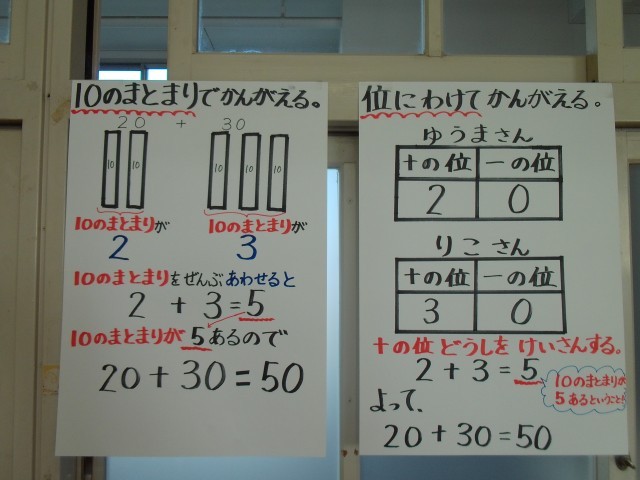 10のまとまりでかんがえる。
20 + 30
10 10 10 10 10
10のまとまりが 10のまとまりが
2 3
10のまとまりをぜんぶあわせると
2 + 3 = 5
10のまとまりが 5 あるので
20 + 30 = 50
位にわけてかんがえる。
ゆうまさん
十の位 一の位
2 0
りこさん
十の位 一の位
3 0
十の位どうしをけいさんする。
2 + 3 = 5
10のまとまりが
5あるということ
よって、
20 + 30 = 50